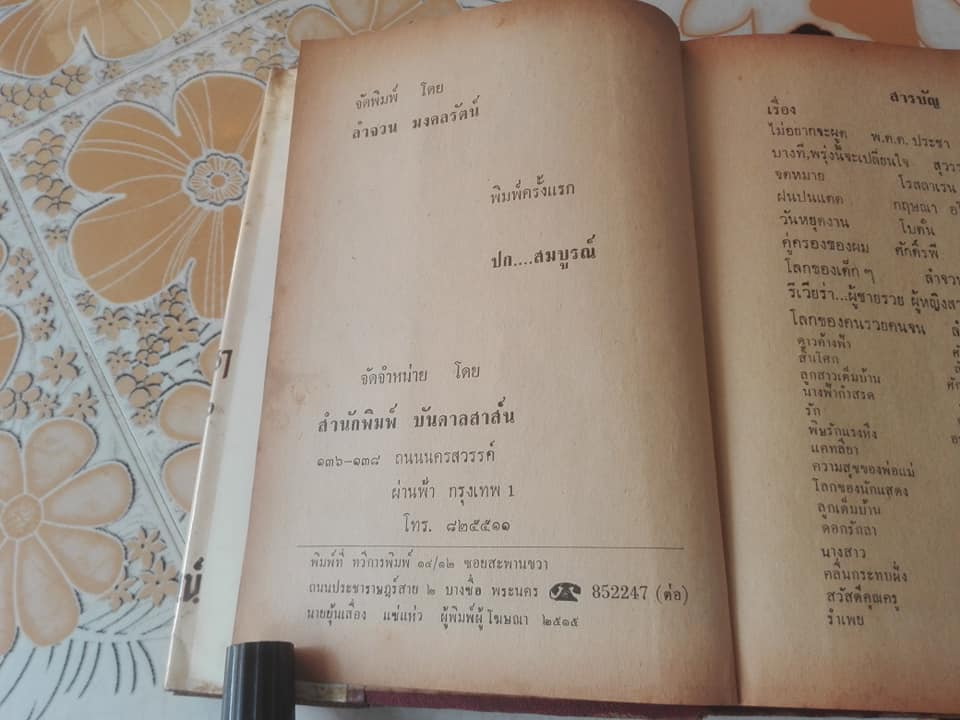 จัดพิมพ์ โดย
ลำจวน มงคลรัตน์
พิมพ์ครั้งแรก
ปก....สมบูรณ์
จัดจำหน่าย โดย
สำนักพิมพ์ บันดาลสาส์น
๑๓๖–๑๓๘ ถนนนครสวรรค์
ผ่านฟ้า กรุงเทพ 1
โทร. ๘๒๕๕๑๑
พิมพ์ที่ ทวีการพิมพ์ ๑๔/๑๒ ซอยสะพานขวา
ถนนประชาราษฎร์สาย ๒ บางซื่อ พระนคร ☎ 852247 (ต่อ)
นายยุ้นเลื่อง แซ่แห่ว ผู้พิมพ์ผู้โฆษณา ๒๕๑๕
สารบัญ
เรื่อง
ไม่อยากจะผูด พ.ต.ต. ประชา
บางที,พรุ่งนี้จะเปลี่ยนใจ
จดหมาย โรสลาเรน
ฝนปนแดด กฤษณา
วันหยุดงาน โบตั๋น
คู่ครองของผม ศักดิ์รพี
โลกของเด็ก ๆ ลำจวน
รีเวียร่า...ผู้ชายรวย ผู้หญิง
โลกของคนรวยคนจน
ดาวค้างฟ้า
สำโศก
ลูกสาวเต็มบ้าน
นางฟ้ากำสรด
รัก
พิษรักแรงหึง
แคทลียา
ความสุขของพ่อแม่
โลกของนักแสดง
ลูกเต็มบ้าน
ดอกรักลา
นางสาว
คลื่นกระทบฝั่ง
สวัสดีคุณครู
รำเพย